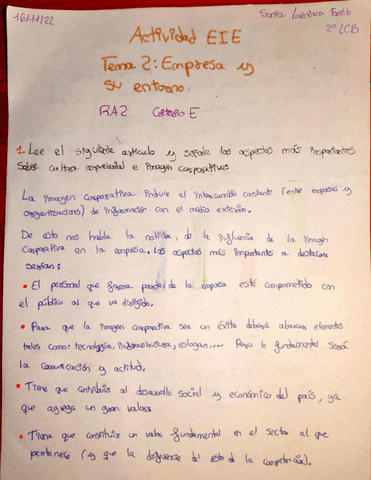 16/11/22
2º LCB
Actividad EIE
Tema 2: Empresa y
su entorno
RA2 Criterio E
1. Lee el siguiente artículo y señale los aspectos más importantes
sobre cultura empresarial e imagen corporativa:
La imagen corporativa incluye al intercambio constante (entre empresas y
organizaciones) de información con el medio exterior.
De esto nos habla la noticia, de la influencia de la imagen
corporativa en la empresa. Los aspectos más importantes a destacar
serían:
• El personal que forma parte de la empresa esté comprometido con
el público al que va dirigido.
• Para que la imagen corporativa sea un éxito deberá abarcar elementos
tales como: tecnología, infraestructura, eslogan,... Pero lo fundamental será
la comunicación y actitud.
• Tiene que contribuir al desarrollo social y económico del país, ya
que agrega un gran valor.
• Tiene que constituir un valor fundamental en el sector al que
pertenece (y que la diferencie del resto de la competencia).